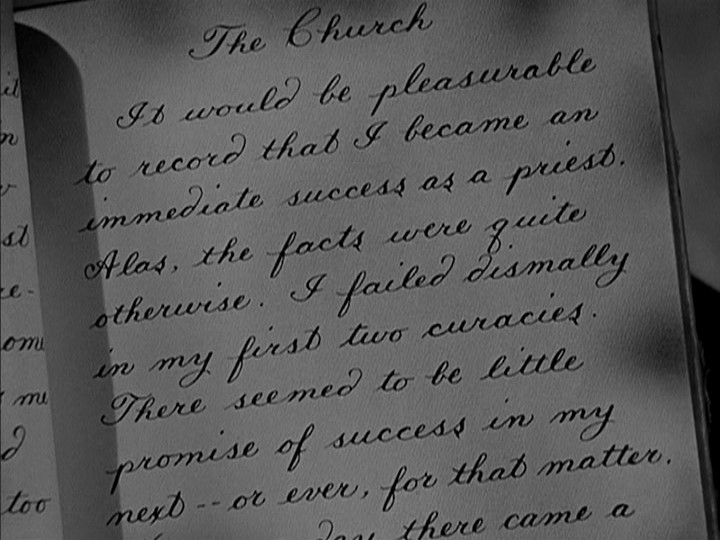 The Church
It would be pleasurable
to record that I became an
immediate success as a priest.
Alas, the facts were quite
otherwise. I failed dismally
in my first two curacies.
There seemed to be little
promise of success in my
next -- or ever, for that matter.
day there came a
it
n
st
e-
me
d
too